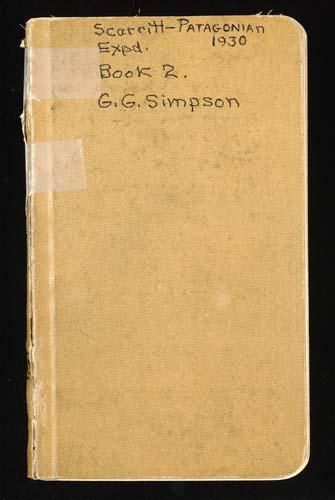 Scarritt-PATAGONIAN
Expd. 1930
Book 2.
G.G. Simpson